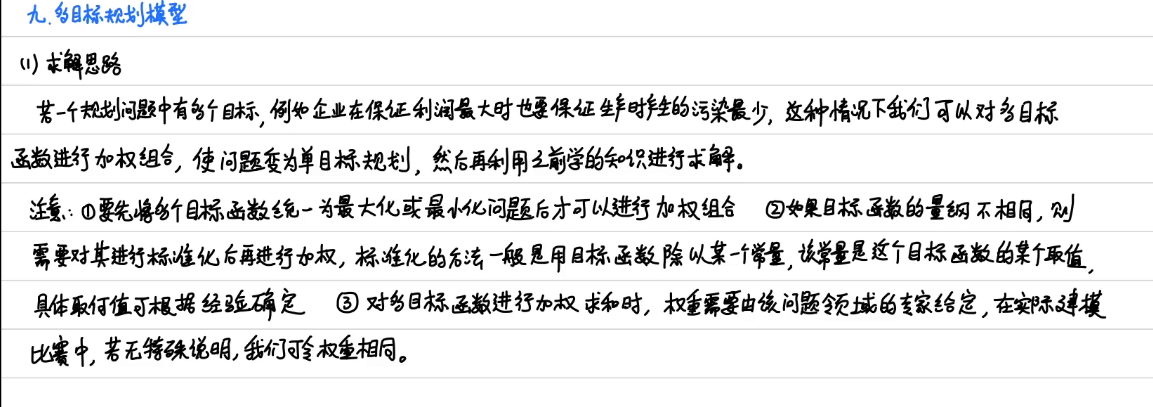 九.多目标规划模型
(1) 求解思路
若一个规划问题中有多个目标,例如企业在保证利润最大时也要保证生产时产生的污染最少,这种情况下我们可以对多目标
函数进行加权组合,使问题变为单目标规划,然后再利用之前学的知识进行求解。
注意:①要先将多个目标函数统一为最大化或最小化问题后才可以进行加权组合 ②如果目标函数的量纲不相同,则
需要对其进行标准化后再进行加权,标准化的方法一般是用目标函数除以某一个常量,该常量是这个目标函数的某个取值,
具体取何值可根据经验确定 ③对多目标函数进行加权求和时,权重需要由该问题领域的专家给定,在实际建模
比赛中,若无特殊说明,我们可令权重相同。